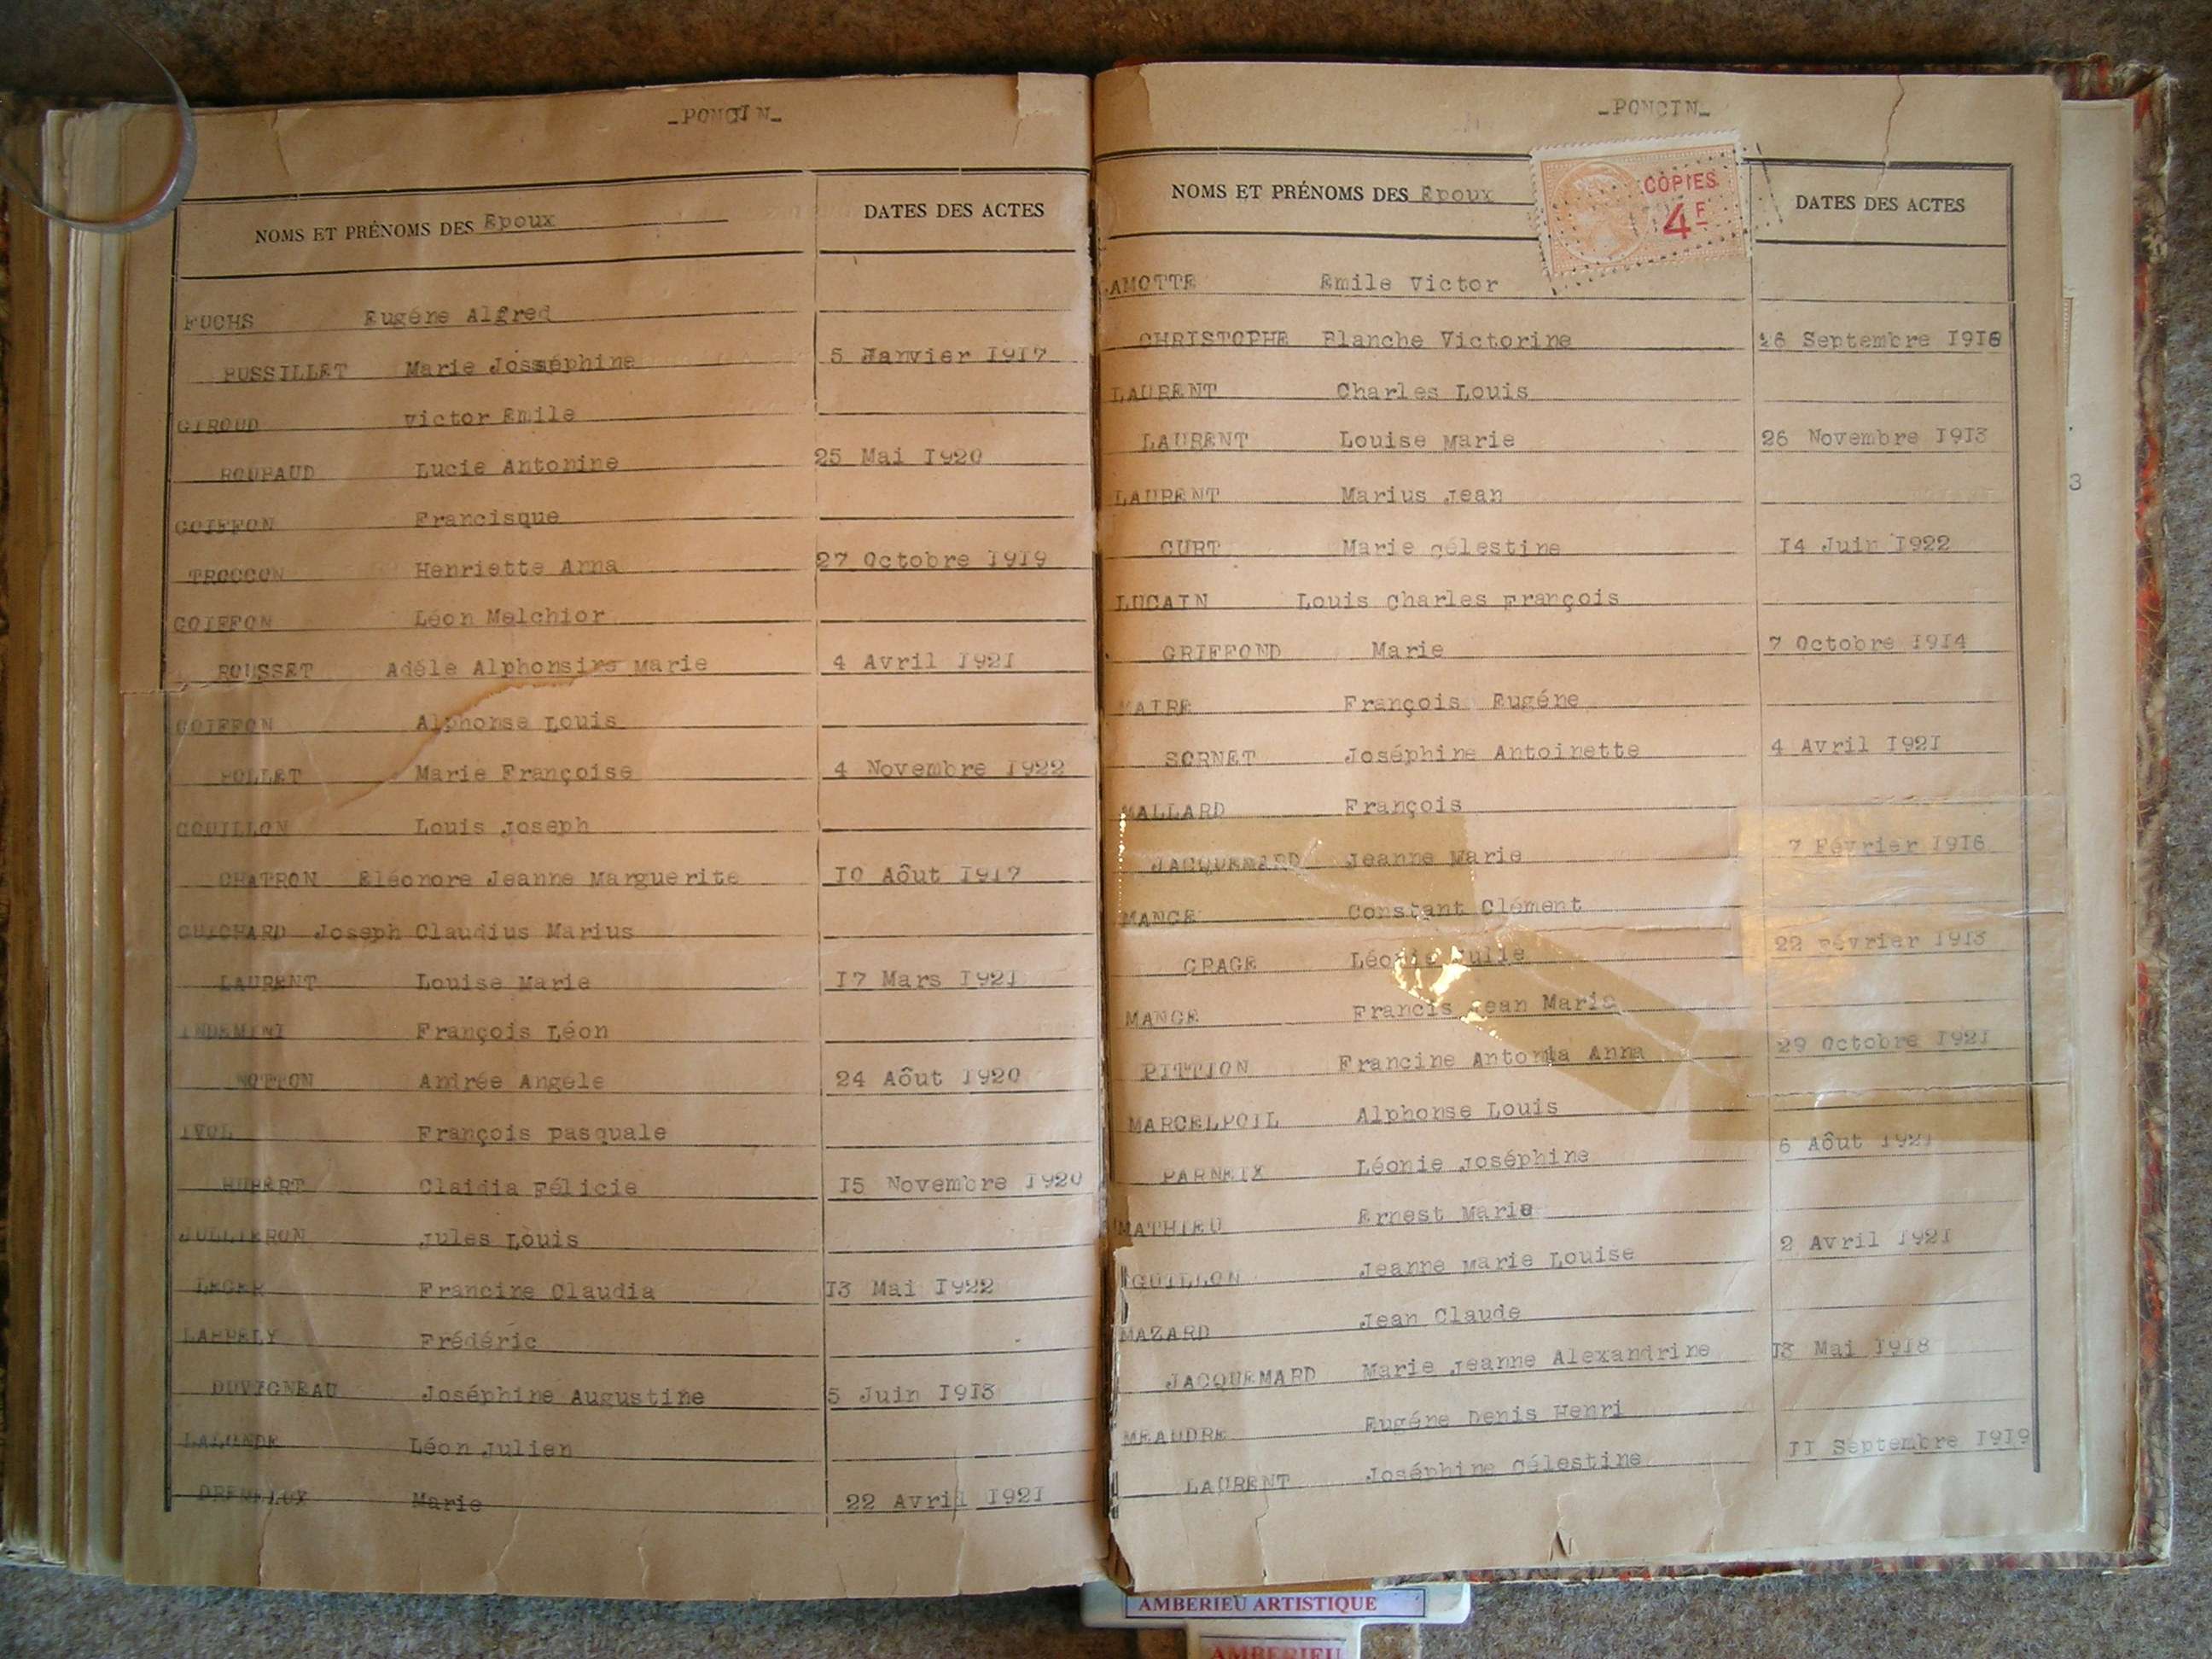 -PONCIN-
NOMS ET PRÉNOMS DES Epoux DATES DES ACTES
FUCHS Eugéne Alfred
BUSSILLET Marie Joséphine 5 Janvier 1917
GIROUD Victor Emile
ROUBAUD Lucie Antonine 25 Mai 1920
GOIFFON Francisque
TROCCON Henriette Anna 27 Octobre 1919
GOIFFON Léon Melchior
ROUSSET Adéle Alphonsine Marie 4 Avril 1921
GOIFFON Alphonse Louis
POLLET Marie Françoise 4 Novembre 1922
GOUILLON Louis Joseph
CHATRON Eléonore Jeanne Marguerite 10 Aôut 1917
GUICHARD Joseph Claudius Marius
LAURENT Louise Marie 17 Mars 1921
INDEMINI François Léon
Andrée Angéle 24 Aôut 1920
IVOL François Pasquale
HUBERT Claidia Félicie 15 Novembre 1920
JULLIERON Jules Louis
LEGER Francine Claudia 13 Mai 1922
Frédéric
DUVIGNEAU Joséphine Augustine 5 Juin 1913
LALONDE Léon Julien
Marie 22 Avril 1921
-PONCIN-
NOMS ET PRÉNOMS DES Epoux DATES DES ACTES
COPIES
4F
AMOTTE Emile Victor
CHRISTOPHE Blanche Victorine 26 Septembre 1918
LAURENT Charles Louis
LAURENT Louise Marie 26 Novembre 1913
LAURENT Marius Jean
CURT Marie Célestine 14 Juin 1922
LUCAIN Louis Charles François
GRIFFOND Marie 7 Octobre 1914
MAIRE François Eugéne
SORNET Joséphine Antoinette 4 Avril 1921
MALLARD François
JACQUEMARD Jeanne Marie 7 Février 1916
MANGE Constant Clément
GRAGE Léonie Julie 22 Février 1913
MANGE Francis Jean Marie
PITTION Francine Antonia Anna 29 Octobre 1921
MARCELPOIL Alphonse Louis
PARNEIX Léonie Joséphine 6 Aôut 1921
MATHIEU Ernest Marie
GUILLON Jeanne Marie Louise 2 Avril 1921
MAZARD Jean Claude
JACQUEMARD Marie Jeanne Alexandrine 13 Mai 1918
MEAUDRE Eugéne Denis Henri
LAURENT Joséphine Célestine 11 Septembre 1919
3
AMBERIEU ARTISTIQUE
AMBERIEU